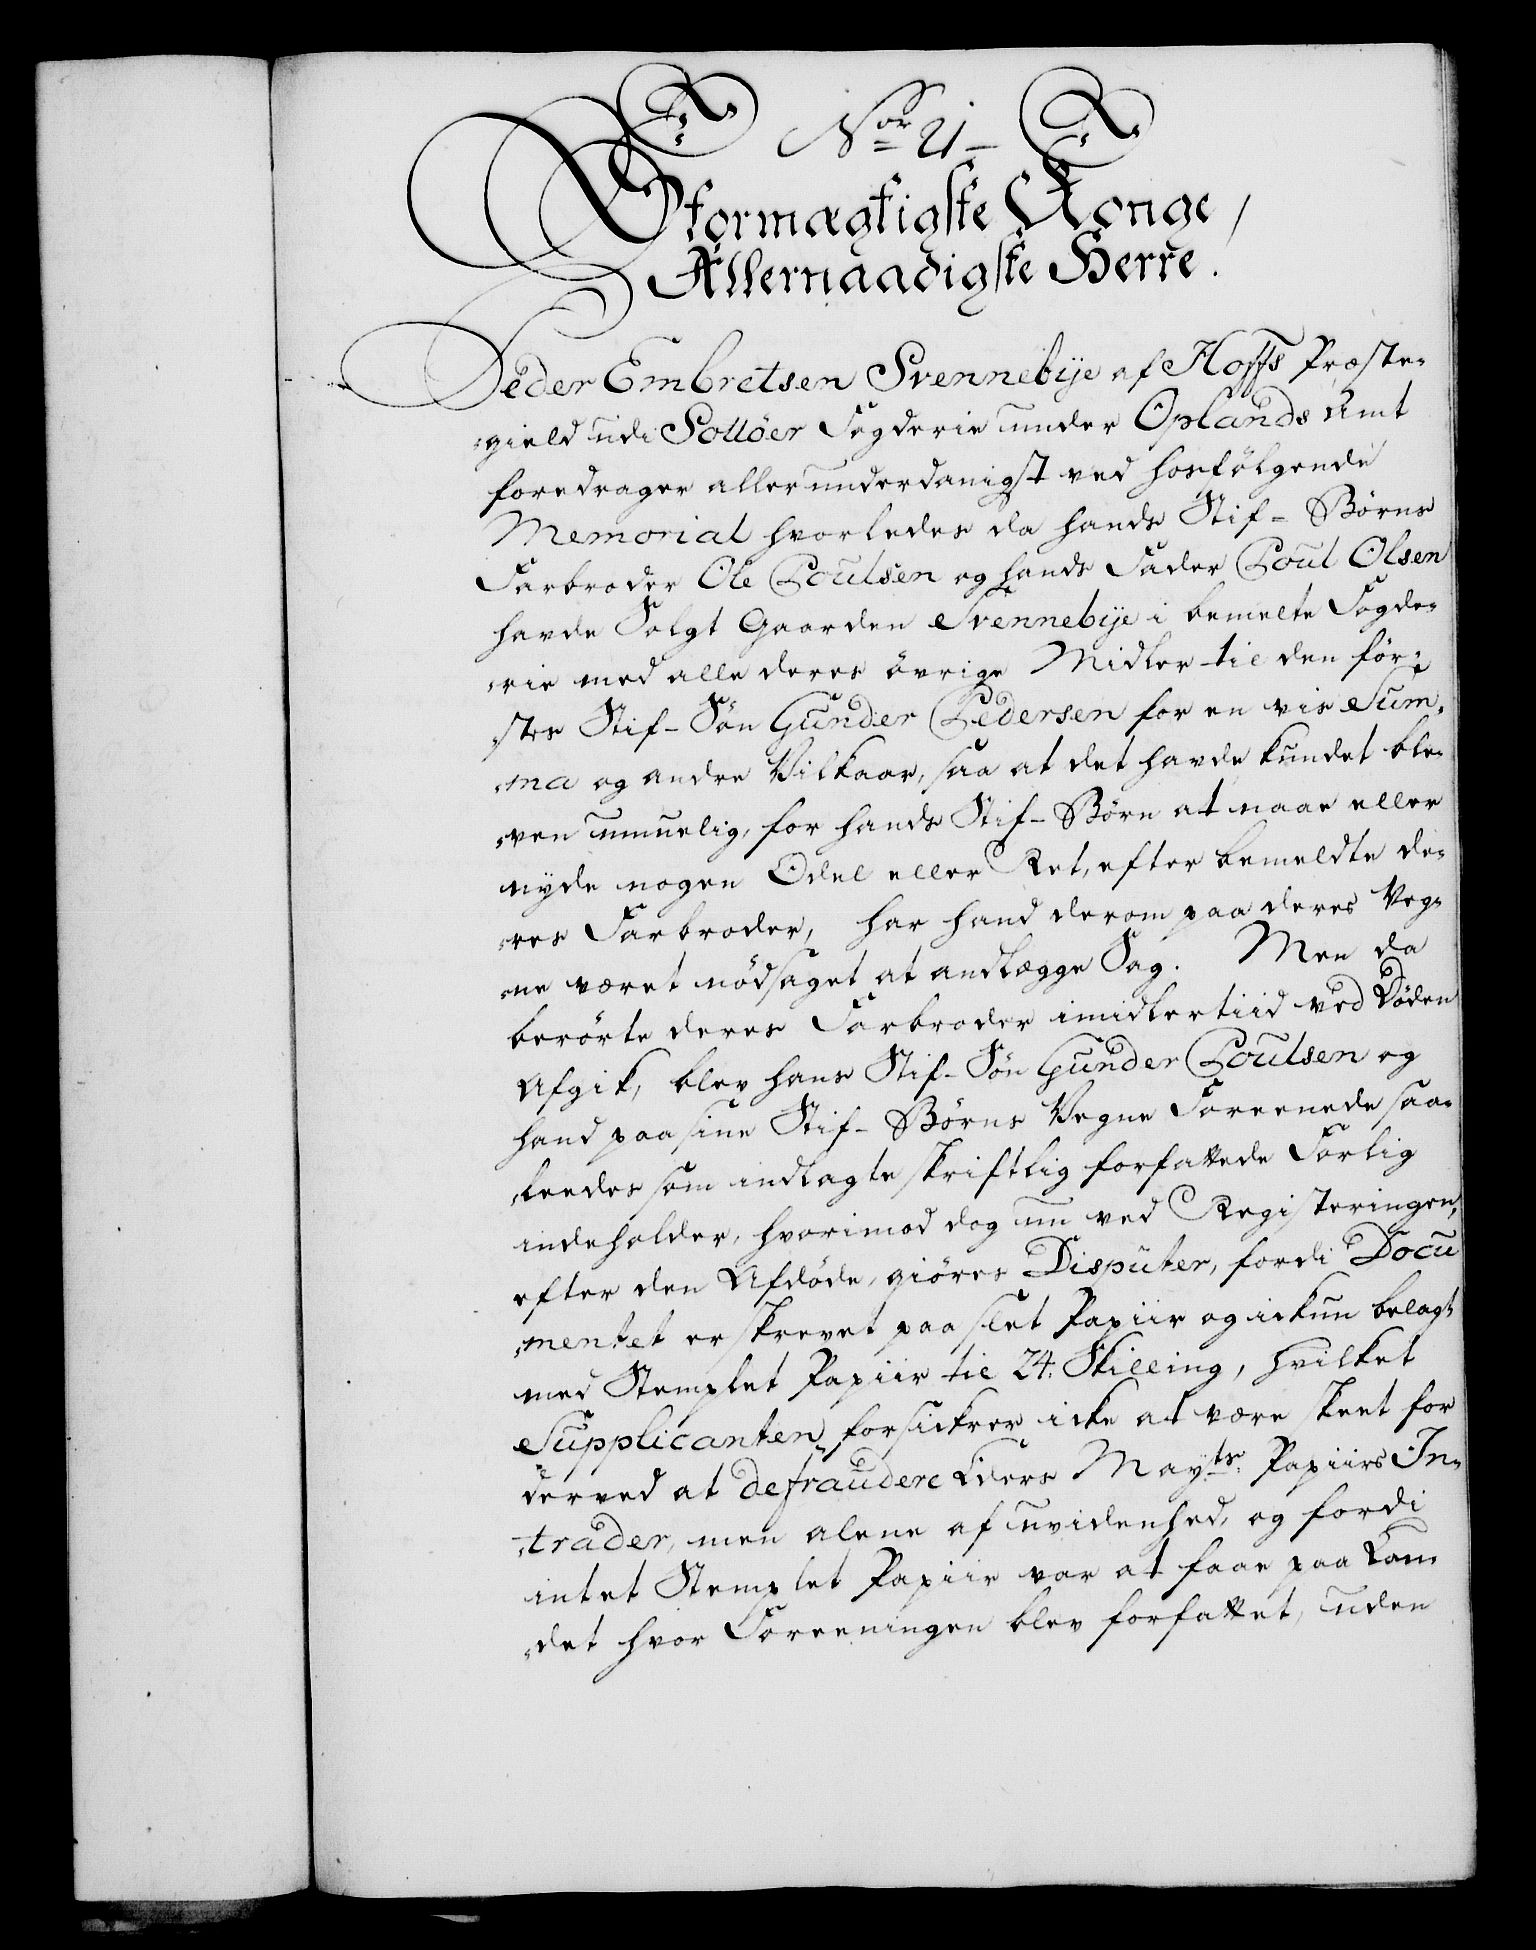 Nor 21
Stormægtigste Konge,
Allernaadigste Herre.
Peder Embretsen Svennebÿe af Hoffs Præste-
gield udi Solløer Fogderie under Oplands Amt
foredrager allerunderdanigst ved hosfølgende
Memorial hvorledes da hands Stif-Børns
Farbroder Ole Poulsen og hands Fader Poul Olsen
havde Solgt Gaarden Svennebÿe i bemelte Fogde-
rie med alle deres øvrige Midler til den før-
stes Stif-Søn Gunder Pedersen for en vis Sum-
ma og andre Vilkaar, saa at det havde kundet ble-
ven umuelig, for hands Stif-Børn at naae eller
nyde nogen Odel eller Ret, efter bemeldte de-
res Farbroder, har hand derom paa deres Veg-
ne været nødsaget at anlægge Sag. Men da
berørte deres Farbroder imidlertiid ved Døden
Afgik, blev hans Stif-Søn Gunder Poulsen og
hand paa sine Stif-Børns Vegne Foreenede saa-
leedes som indlagte skriftlig forfattede Forlig
indeholder, hvorimod dog nu ved Registeringen,
efter den Afdøde, giøres Disputer, fordi Docu
mentet er skrevet paa slet Papiir og ickun belagt
med Stemplet Papiir til 24. Skilling, hvilket
Supplicanten forsickrer icke at være skeet for
derved at defraudere Eders Mayts. Papiirs In-
trader, men alene af uvidenhed, og fordi
intet Stemplet Papiir var at faae paa Lan-
det hvor Foreeningen blev forfattet, uden